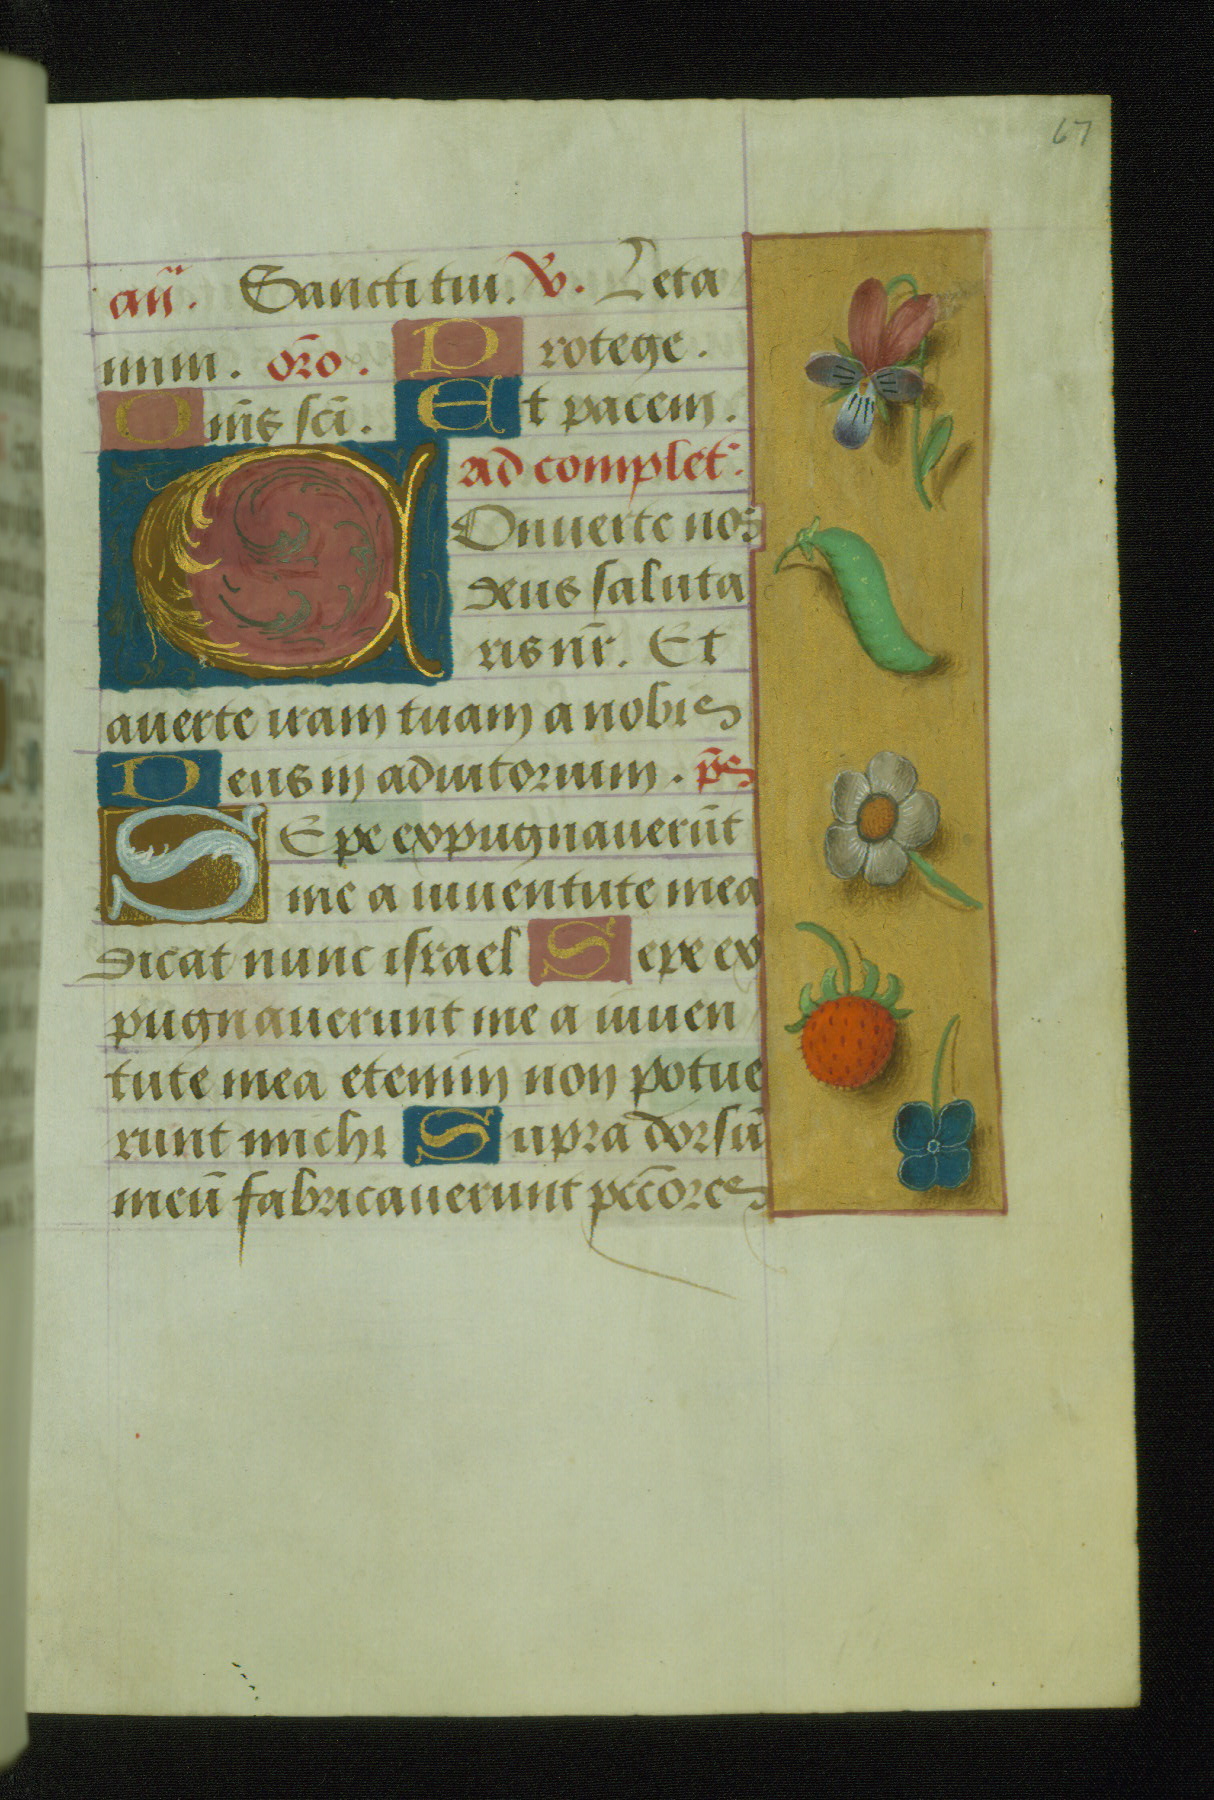 67
añ. Sancti tui. V. Leta
mini. oro. Protege.
Oms sci. Et pacem.
ad complet.
Conuerte nos
deus saluta
ris nr. Et
auerte iram tuam a nobis
Deus in adiutorium. ps
Sepe expugnauerūt
me a iuuentute mea
dicat nunc israel Sepe ex
pugnauerunt me a iuuen
tute mea etenim non potue
runt michi Supra dorsū
meū fabricauerunt pccores